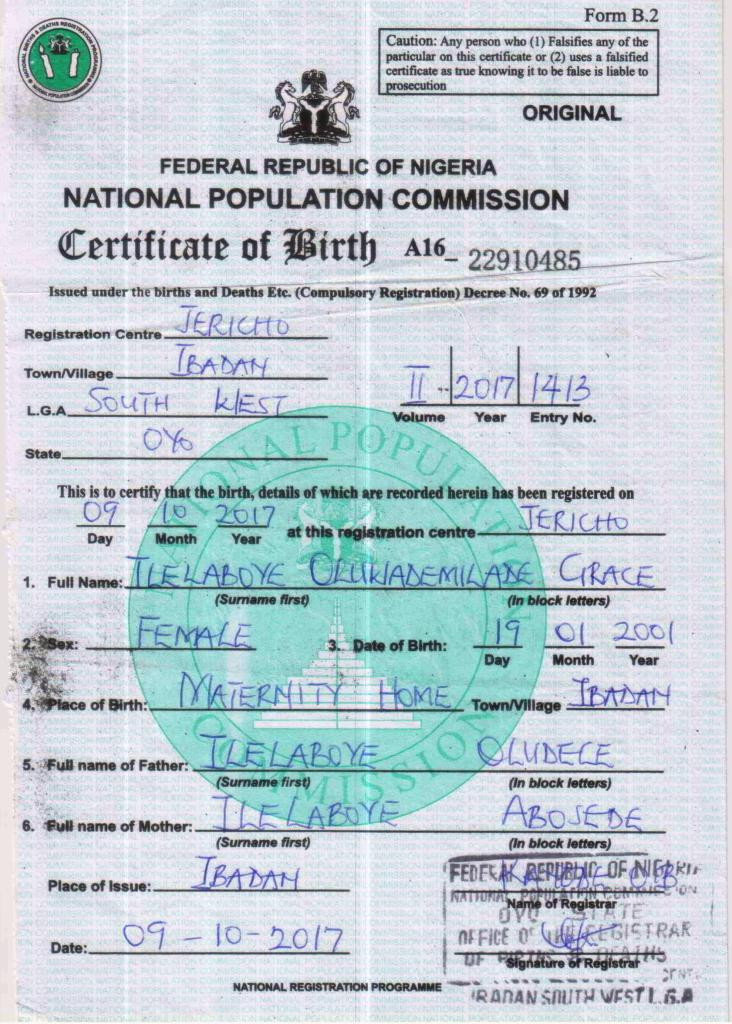 Form B.2
Caution: Any person who (1) Falsifies any of the
particular on this certificate or (2) uses a falsified
certificate as true knowing it to be false is liable to
prosecution
ORIGINAL
FEDERAL REPUBLIC OF NIGERIA
NATIONAL POPULATION COMMISSION
Certificate of Birth A16_ 22910485
Issued under the births and Deaths Etc. (Compulsory Registration) Decree No. 69 of 1992
Registration Centre JERICHO
Town/Village IBADAN
L.G.A. SOUTH WEST
II 2017 1413
Volume Year Entry No.
State OYO
This is to certify that the birth, details of which are recorded herein has been registered on
09 10 2017 at this registration centre JERICHO
Day Month Year
1. Full Name: ILELABOYE OLUWADEMILADE GRACE
(Surname first) (In block letters)
2. Sex: FEMALE 3. Date of Birth: 19 01 2001
Day Month Year
4. Place of Birth: MATERNITY HOME Town/Village IBADAN
5. Full name of Father: ILELABOYE OLUDELE
(Surname first) (In block letters)
6. Full name of Mother: ILELABOYE ABOSEDE
(Surname first) (In block letters)
Place of Issue: IBADAN
Name of Registrar
Date: 09-10-2017
Signature of Registrar
FEDERAL REPUBLIC OF NIGERIA
NATIONAL POPULATION COMMISSION
OYO STATE
OFFICE OF THE REGISTRAR
OF BIRTHS & DEATHS
IBADAN SOUTH WEST L.G.A
NATIONAL REGISTRATION PROGRAMME